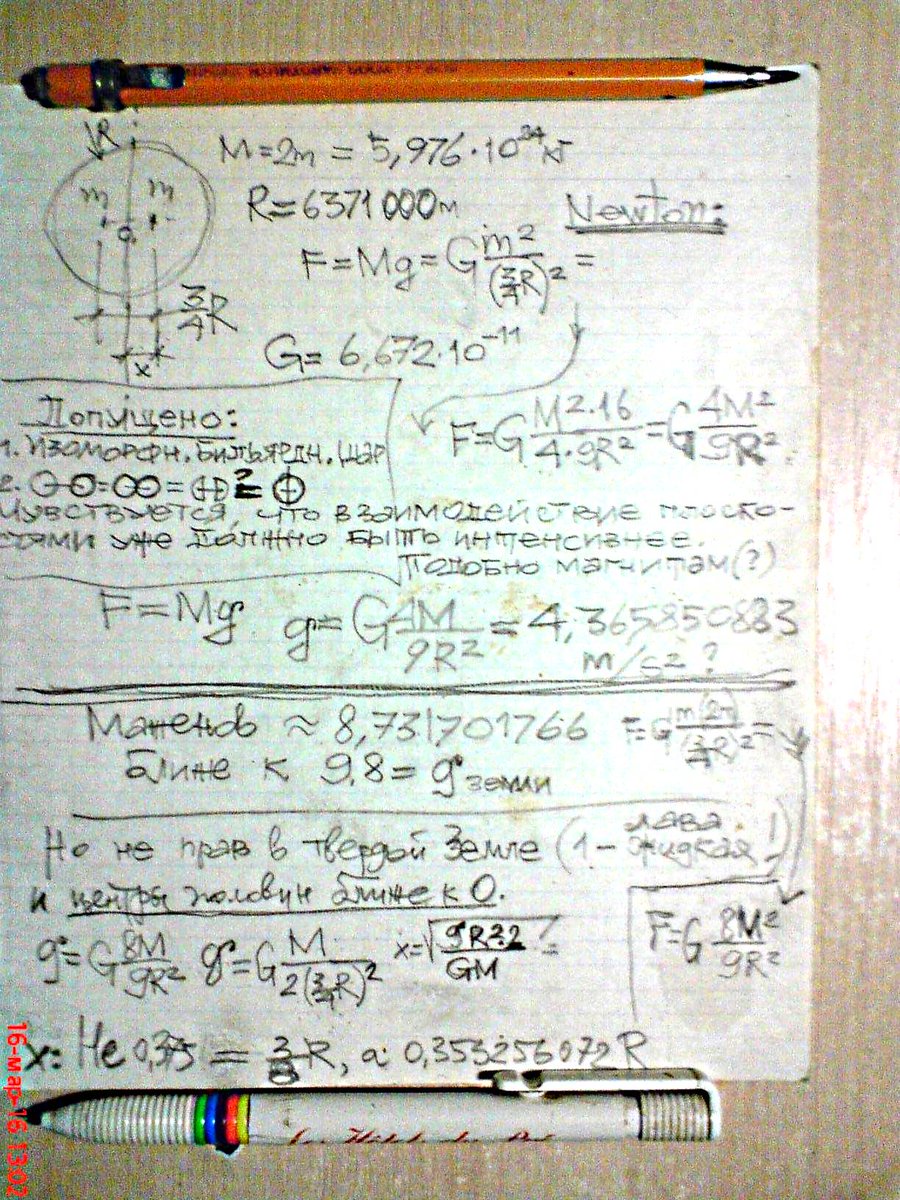 R
M=2m = 5,976·10²⁴кг
m m
R=6371000м
Newton:
0
F=Mg=G m²/(¾R)² =
¾R
x
G= 6,672·10⁻¹¹
Допущено:
F=G M²·16/4·9R² = G 4M²/9R²
1. Изоморфн. Бильярдн. шар
2.
Чувствуется, что взаимодействие плоско-
стями уже должно быть интенсивнее.
Подобно магнитам(?)
F=Mg g=G 4M/9R² = 4,365850883
m/s² ?
≈ 8,731701766 F=G m(2m)/(¾R)² =
ближе к 9,8=g земли
Но не прав в твердой Земле (1- лава жидкая!)
и центры половин ближе к 0.
g=G 8M/9R² g=G M/2(¾R)² F=G 8M²/9R²
x: Не 0,375 = 3/8 R, а 0,353256072 R
16-мар-16 13:02